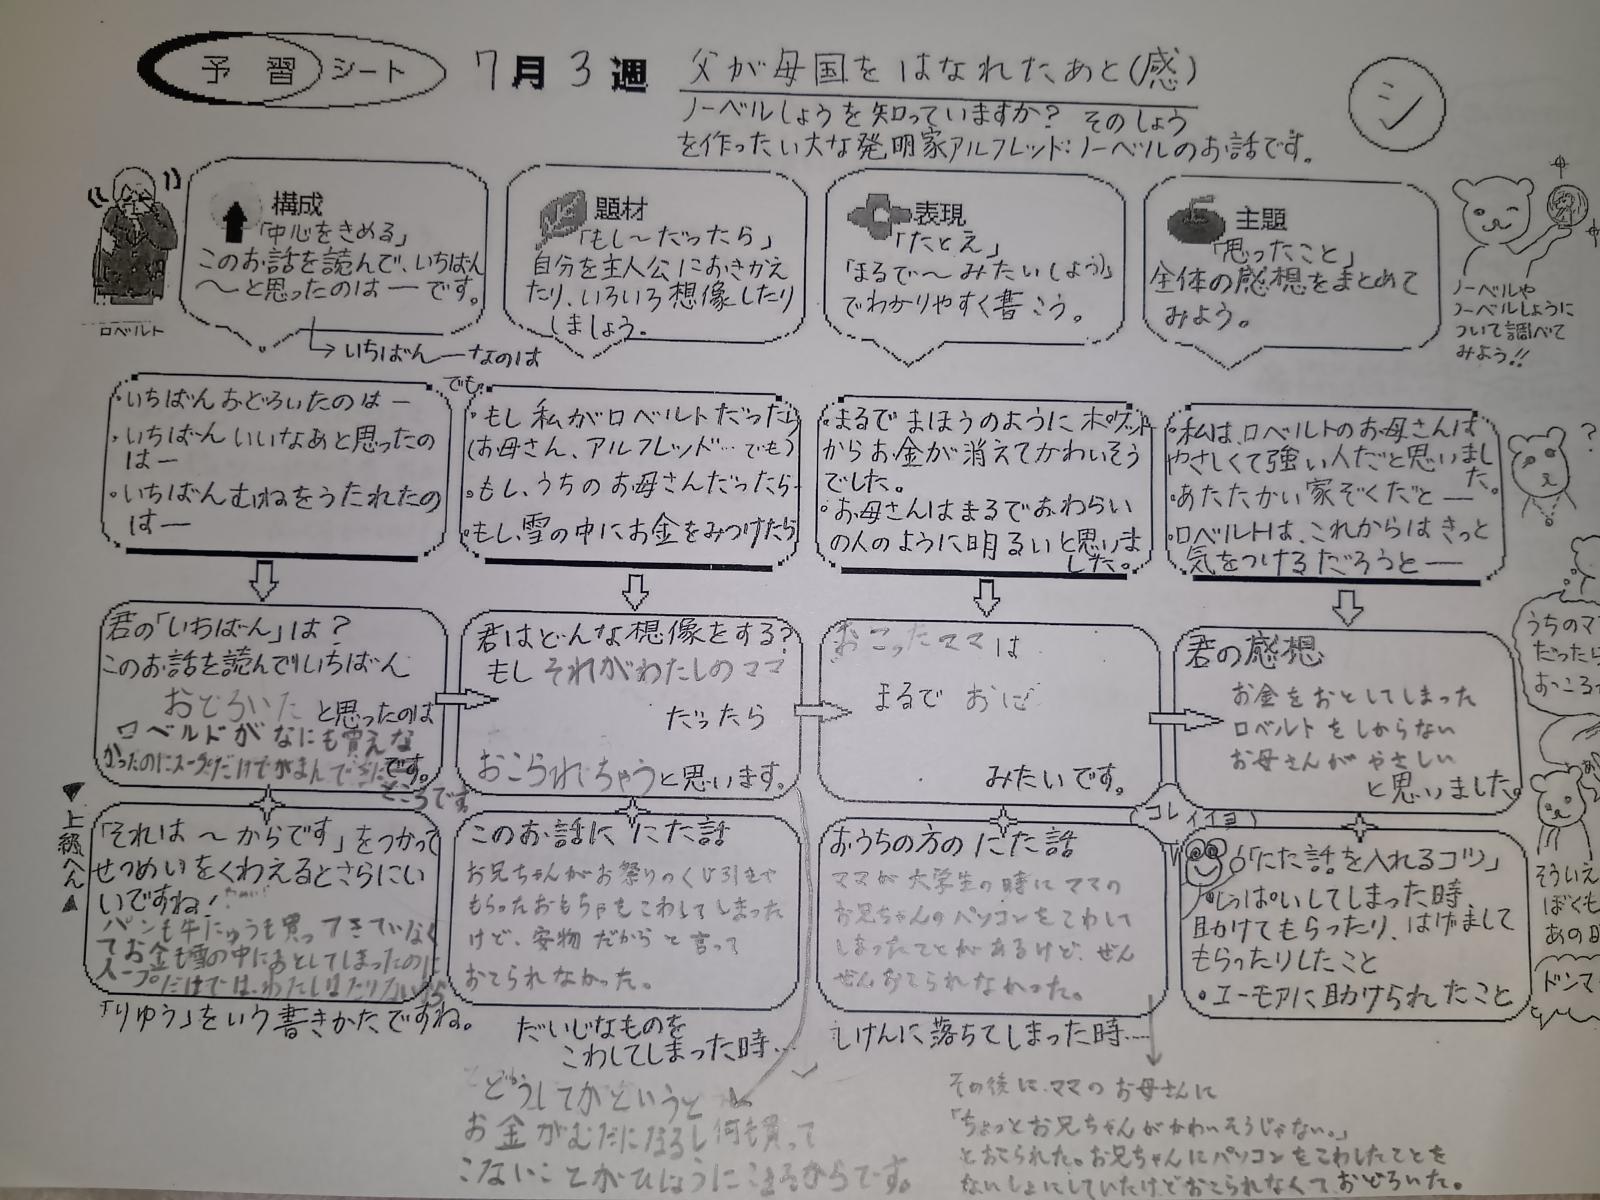 予習シート 7月3週 父が母国をはなれたあと(感)
シ
ノーベルしょうを知っていますか? そのしょう
を作ったい大な発明家アルフレッド:ノーベルのお話です。
ロベルト
構成
「中心をきめる」
このお話を読んで、いちばん
〜と思ったのは ― です。
→ いちばん―なのは
題材
「もし〜だったら」
自分を主人公におきかえ
たり、いろいろ想像したり
しましょう。
表現
「たとえ」
「まるで〜みたい(しよう)」
でわかりやすく書こう。
主題
「思ったこと」
全体の感想をまとめて
みよう。
ノーベルや
ノーベルしょうに
ついて調べて
みよう!!
・いちばんおどろいたのは―
・いちばんいいなあと思ったの
は―
・いちばんむねをうたれたの
は―
でも
・もし私がロベルトだったら
(お母さん、アルフレッド…でも)
・もし、うちのお母さんだったら
・もし、雪の中にお金をみつけたら
・まるでまほうのようにポケット
からお金が消えてかわいそう
でした。
・お母さんはまるでおわらい
の人のように明るいと思いま
した。
・私は、ロベルトのお母さんは
やさしくて強い人だと思いまし
た。
・あたたかい家ぞくだと―
・ロベルトは、これからはきっと
気をつけるだろうと―
?
君の「いちばん」は?
このお話を読んでいちばん
おどろいた と思ったのは
ロベルトがなにも買えな
かったのにスープだけでがまんできた
です。
ところです
君はどんな想像をする?
もし それがわたしのママ
だったら
おこられちゃうと思います。
おこったママは
まるで おに
みたいです。
君の感想
お金をおとしてしまった
ロベルトをしからない
お母さんがやさしい
と思いました。
うちのマ
だったら
おこる
▼上級へん▲
「それは〜からです」をつかって
せつめいをくわえるとさらにい
いですね!
パンも牛にゅうも買ってきていなく
てお金も雪の中におとしてしまったのに
スープだけでは、わたしはたりないから
「りゆう」をいう書きかたですね。
このお話に にた話
お兄ちゃんがお祭りのくじ引きで
もらったおもちゃをこわしてしまった
けど、安物だからと言って
おこられなかった。
だいじなものを
こわしてしまった時…
おうちの方の にた話
ママが大学生の時にママの
お兄ちゃんのパソコンをこわして
しまったことがあるけど、ぜん
ぜんおこられなかった。
しけんに落ちてしまった時……
コレイイヨ
「にた話を入れるコツ」
・しっぱいしてしまった時
助けてもらったり、はげまして
もらったりしたこと
・ユーモアに助けられたこと
そういえ
ぼくも
あの日
ドンマ
どうしてかというと
お金がむだになるし何も買って
こないことがひじょうにこまるからです。
その後に、ママのお母さんに
「ちょっとお兄ちゃんがかわいそうじゃない。」
とおこられた。お兄ちゃんにパソコンをこわしたことを
ないしょにしていたけどおこられなくておどろいた。